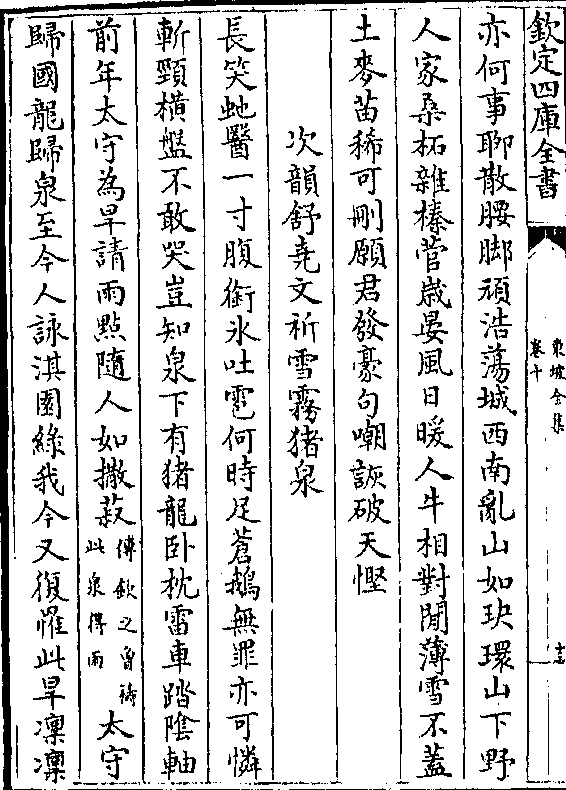 欽定四庫全書
東坡全集
卷十
亦何事聊散腰脚頑浩蕩城西南亂山如玦環山下野
人家桑柘雜榛菅歲晏風日暖人牛相對閒薄雪不蓋
土麥苗稀可刪願君發豪句嘲詼破天慳
次韻舒堯文祈雪霧猪泉
長笑虵醫一寸腹銜氷吐雹何時足蒼鵝無罪亦可憐
斬頸横盤不敢哭豈知泉下有猪龍卧枕雷車踏陰軸
前年太守為旱請雨點隨人如撒菽傅欽之曽禱此泉得雨太守
歸國龍歸泉至今人詠淇園緑我今又復罹此旱凛凛